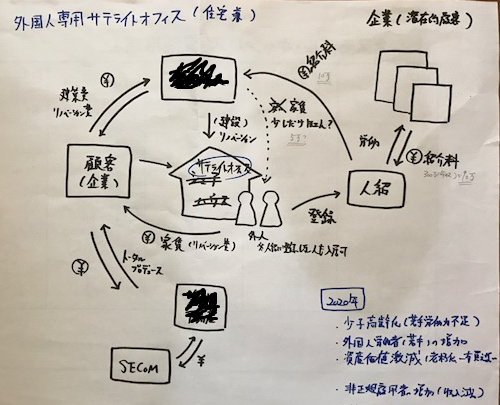 外国人専用サテライトオフィス(住宅業)
企業(潜在的顧客)
¥
¥紹介料
建築費
リノベーション費
家賃
少しだけ
(建設)
リノベーション
労働力
¥紹介料
顧客
(企業)
サテライトオフィス
人紹
登録
¥ 家賃(リノベーション費)
外人
トータル
プロデュース
¥
SECOM
¥
2020年
・少子高齢化(若手労働力不足)
・外国人労働者(若手)の増加
・資産価値激減(老朽化
・非正規雇用者増加(収入減)